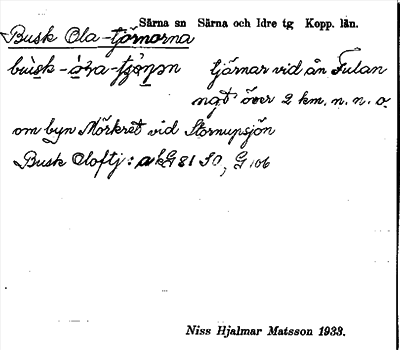 Särna sn Särna och Idre tg Kopp. län.
Busk Ola-tjärnarna
tjärnar vid ån Fulan
ngt över 2 km. n. n. o.
om byn Mörkret vid Stornupsjön
Busk Oloftj: akG 81 SO, G 106
Niss Hjalmar Matsson 1933.